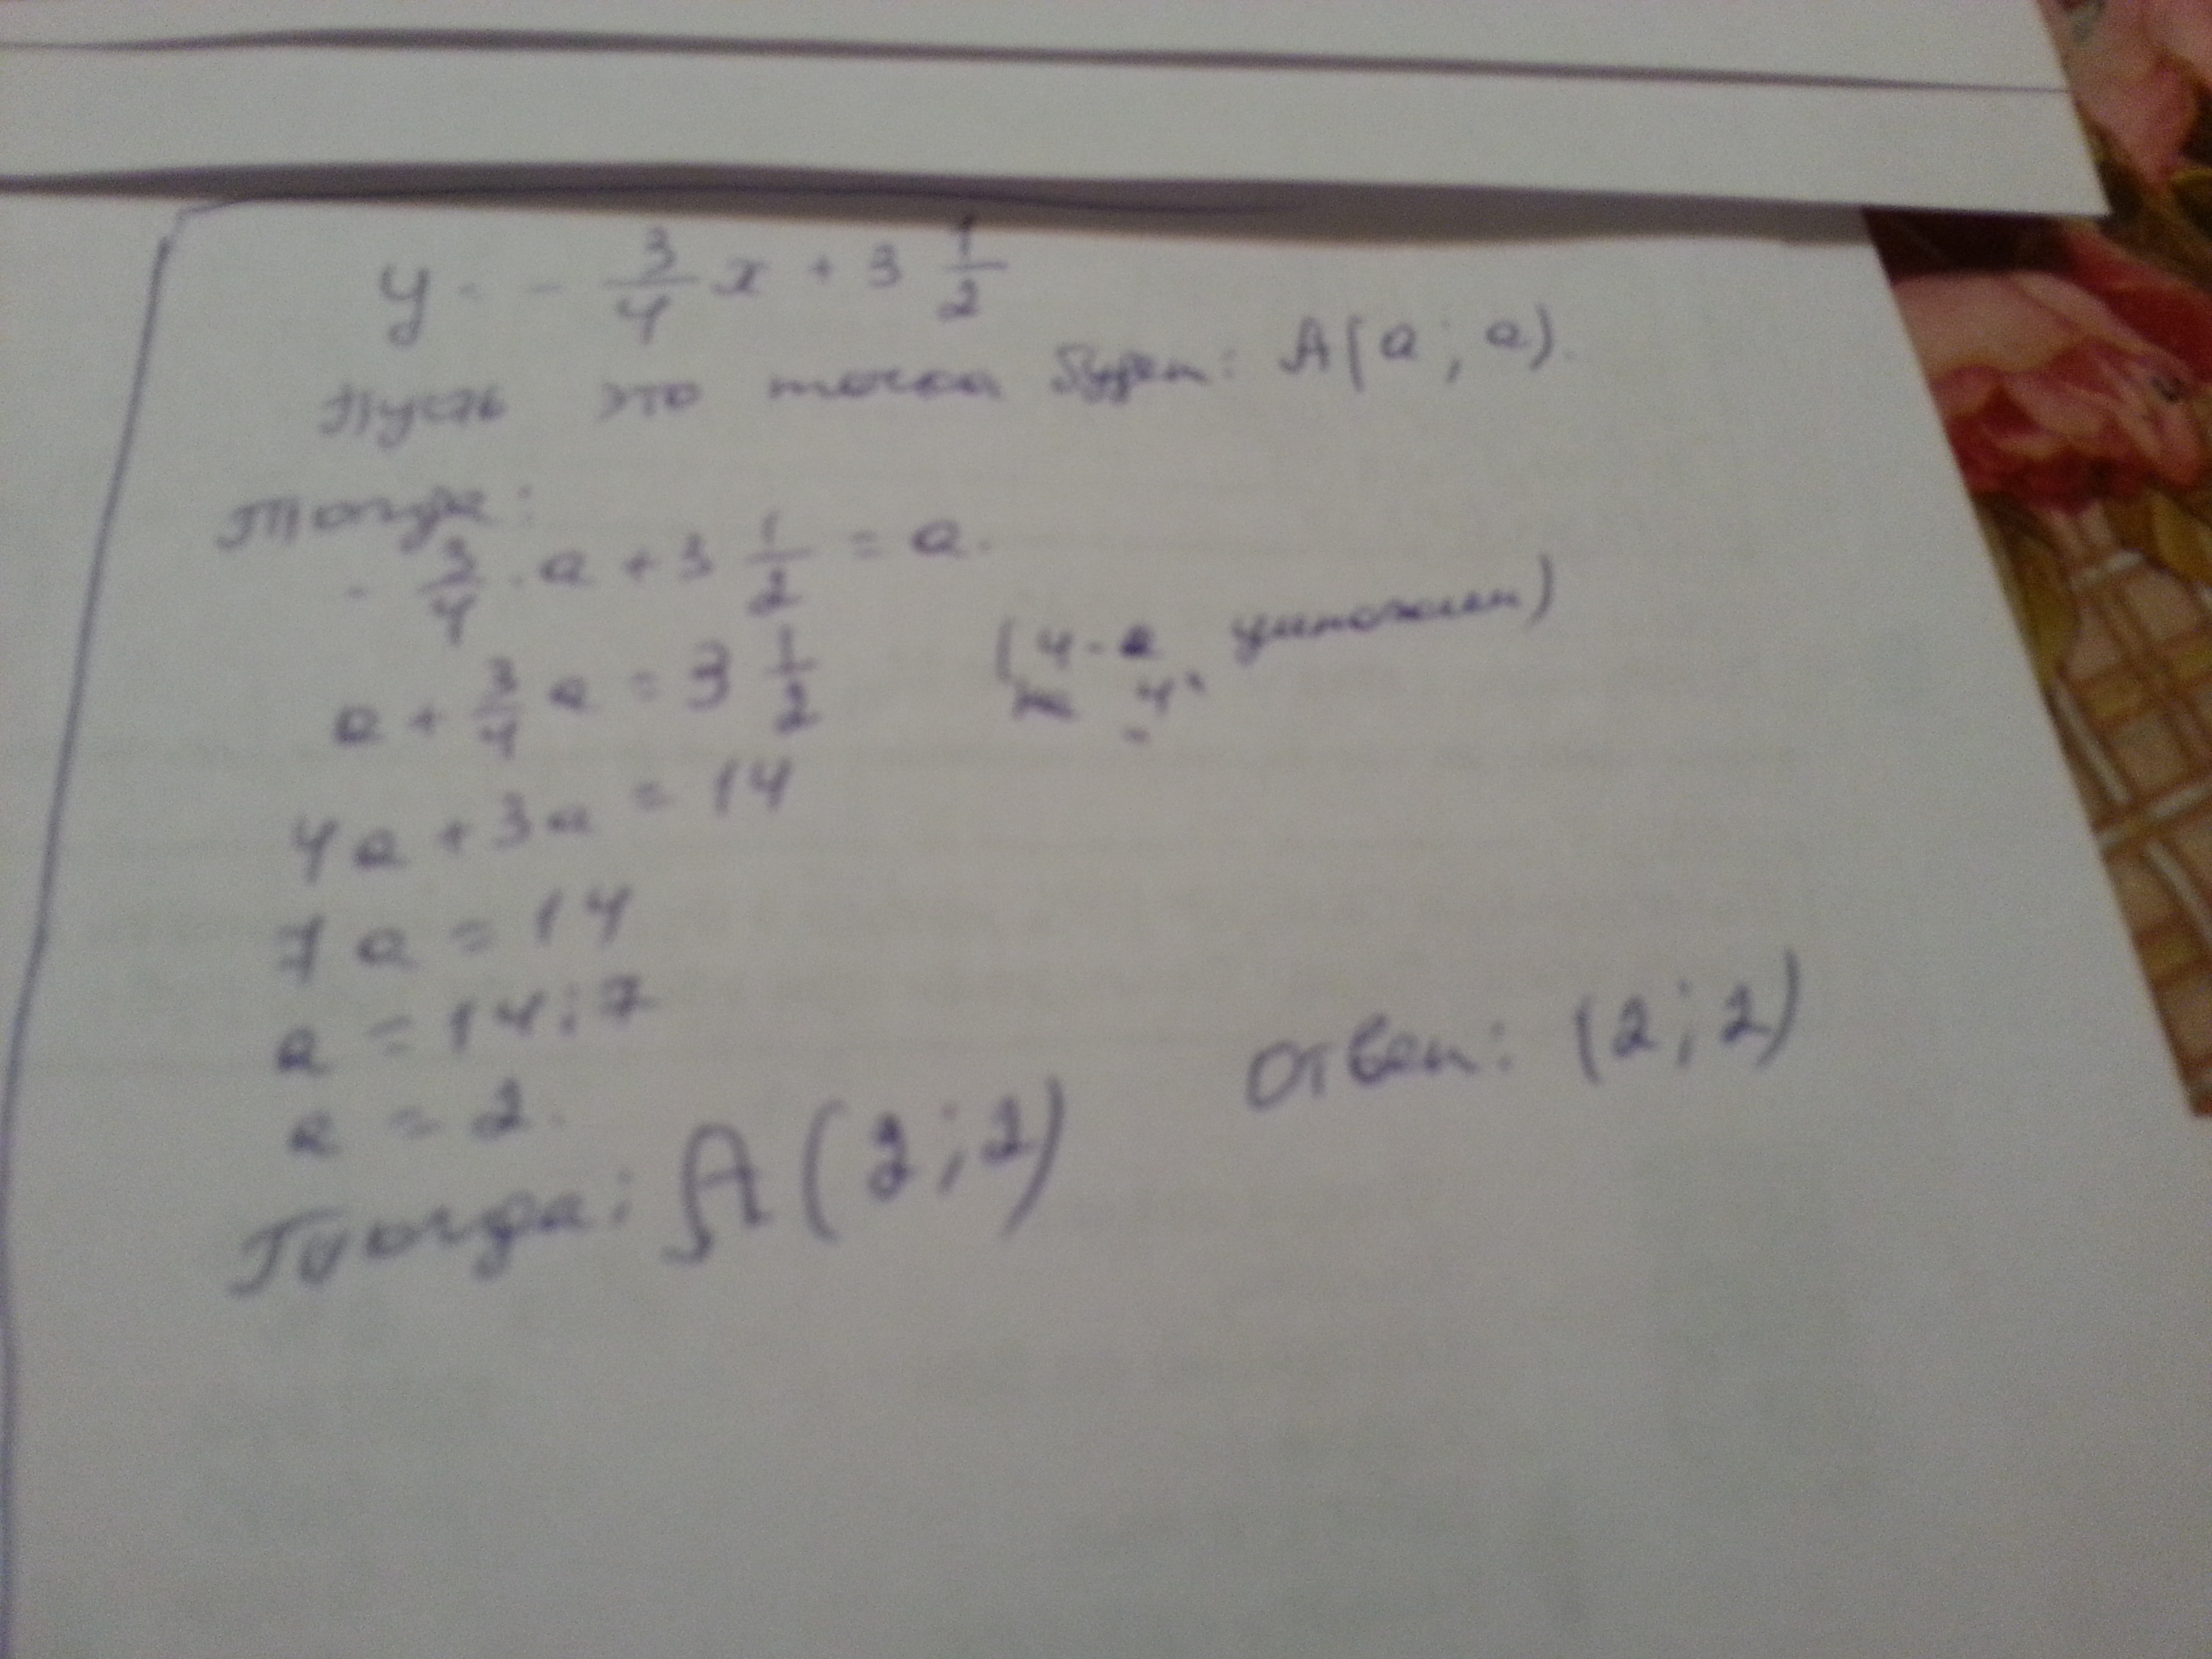 y = - 3/4 x + 3 1/2
Пусть это точка будет: A(a; a).
Тогда:
- 3/4 · a + 3 1/2 = a.
a + 3/4 a = 3 1/2 (4-е умножаем)
на 4
4a + 3a = 14
7a = 14
a = 14 : 7
a = 2.
Тогда: A(2; 2) Ответ: (2; 2)